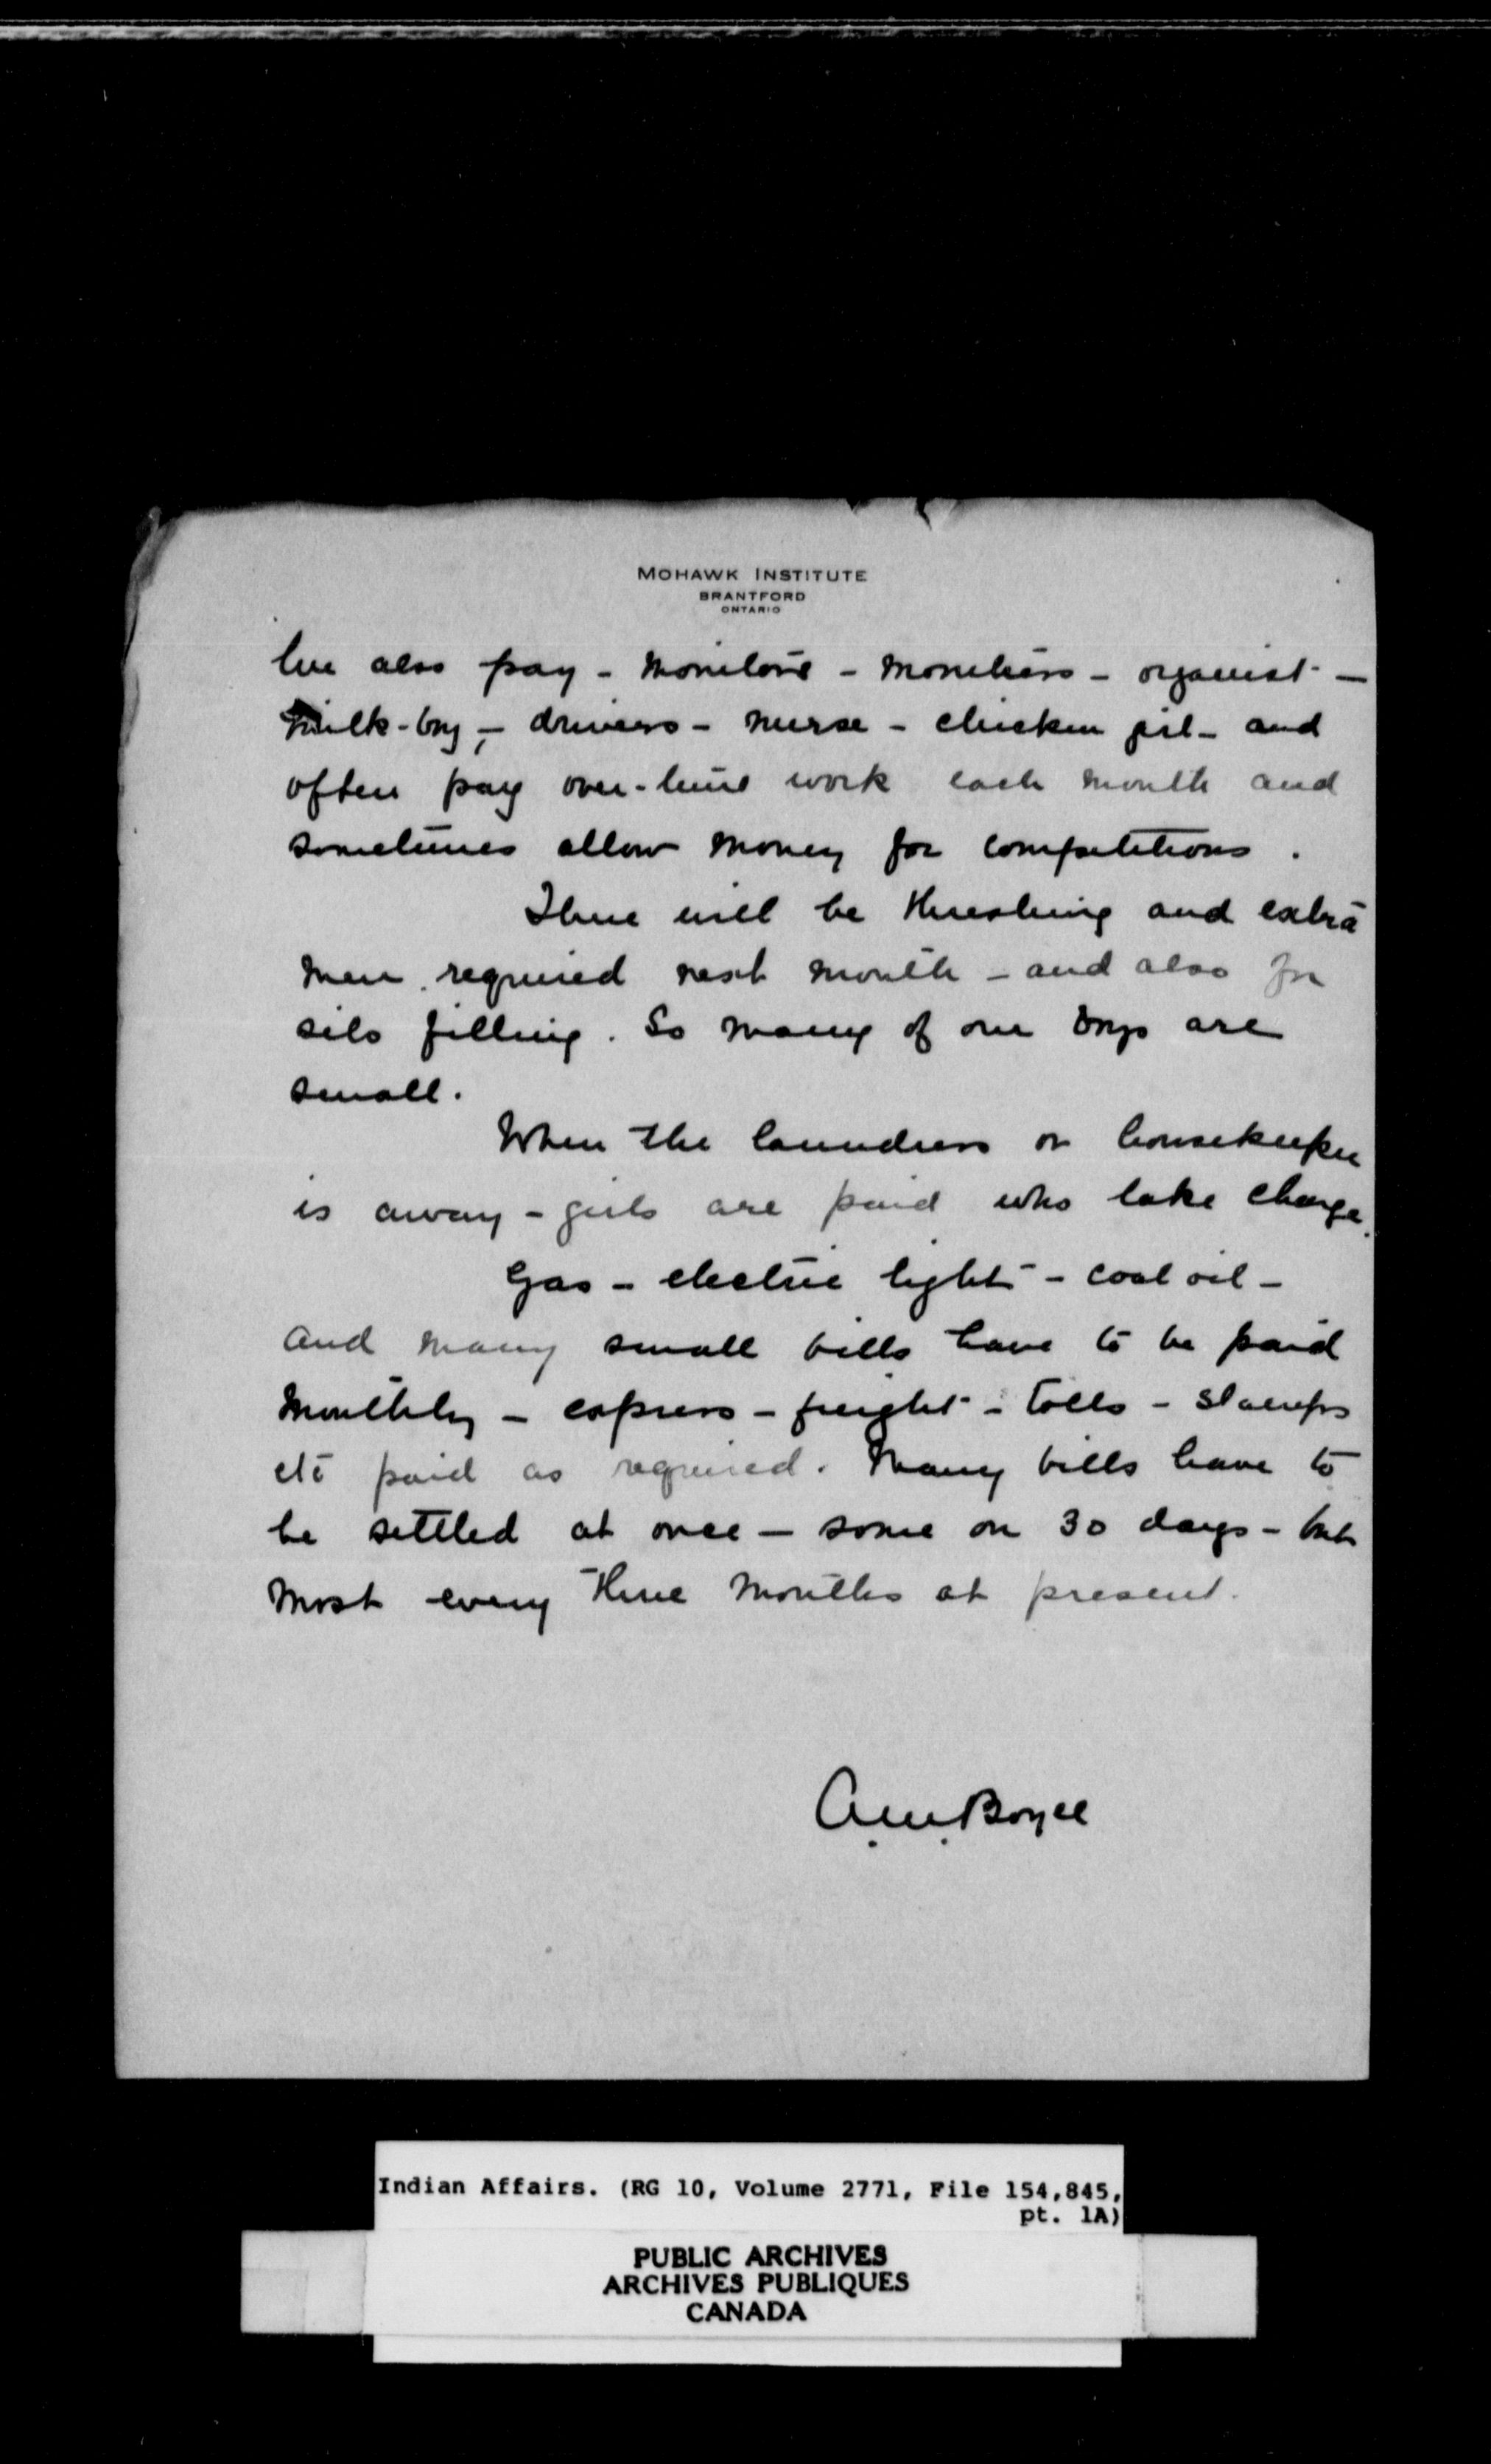 MOHAWK INSTITUTE
BRANTFORD
ONTARIO
We also pay - monitors - monitress - organist -
milk-boy - drivers - nurse - chicken girl - and
often pay over-time work each month and
sometimes allow money for competitions.
There will be threshing and extra
men required next month - and also for
silo filling. So many of our boys are
small.
When the laundress or housekeeper
is away - girls are paid who take charge.
Gas - electric light - coal oil -
and many small bills have to be paid
monthly - express - freight - tolls - stamps
etc paid as required. Many bills have to
be settled at once - some on 30 days - but
most every three months at present.
A.M. Boyce
Indian Affairs. (RG 10, Volume 2771, File 154,845,
pt. 1A)
PUBLIC ARCHIVES
ARCHIVES PUBLIQUES
CANADA